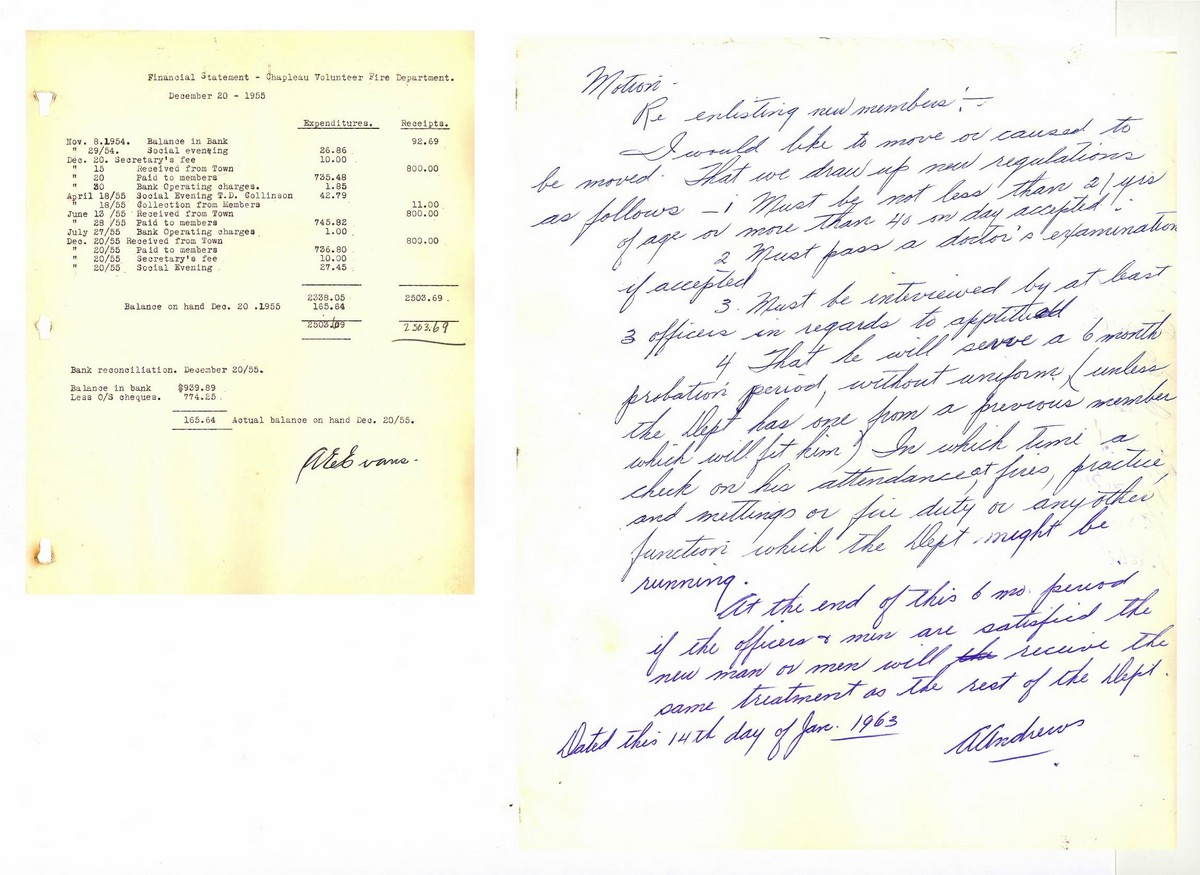 Financial Statement - Chapleau Volunteer Fire Department.
December 20 - 1955
Expenditures. Receipts.
Nov. 8.1954. Balance in Bank 92.69
" 29/54. Social evening 26.86
Dec. 20. Secretary's fee 10.00
" 15 Received from Town 800.00
" 20 Paid to members 735.48
" 30 Bank Operating charges. 1.85
April 18/55 Social Evening T.D. Collinson 42.79
" 18/55 Collection from Members 11.00
June 13 /55 Received from Town 800.00
" 28 /55 Paid to members 745.82
July 27/55 Bank Operating charges 1.00
Dec. 20/55 Received from Town 800.00
" 20/55 Paid to members 736.80
" 20/55 Secretary's fee 10.00
" 20/55 Social Evening 27.45
2338.05 2503.69
Balance on hand Dec. 20 .1955 165.64
2503.69 2503.69
Bank reconciliation. December 20/55.
Balance in bank $939.89
Less O/S cheques. 774.25
165.64 Actual balance on hand Dec. 20/55.
AE Evans.
Motion -
Re enlisting new members! -
I would like to move or caused to
be moved. That we draw up new regulations
as follows - 1 Must be not less than 21 yrs
of age or more than 40 on day accepted.
2 Must pass a doctor's examination
if accepted
3. Must be interviewed by at least
3 officers in regards to
4 That he will serve a 6 month
probation period, without uniform. (unless
the Dept has one from a previous member
which will fit him) In which time a
check on his attendance at fires, practice,
and mettings or fire duty or any other
function which the Dept might be
running.
At the end of this 6 mo. period
if the officers & men are satisfied the
new man or men will the receive the
same treatment as the rest of the Dept.
Dated this 14th day of Jan. 1963
A Andrews